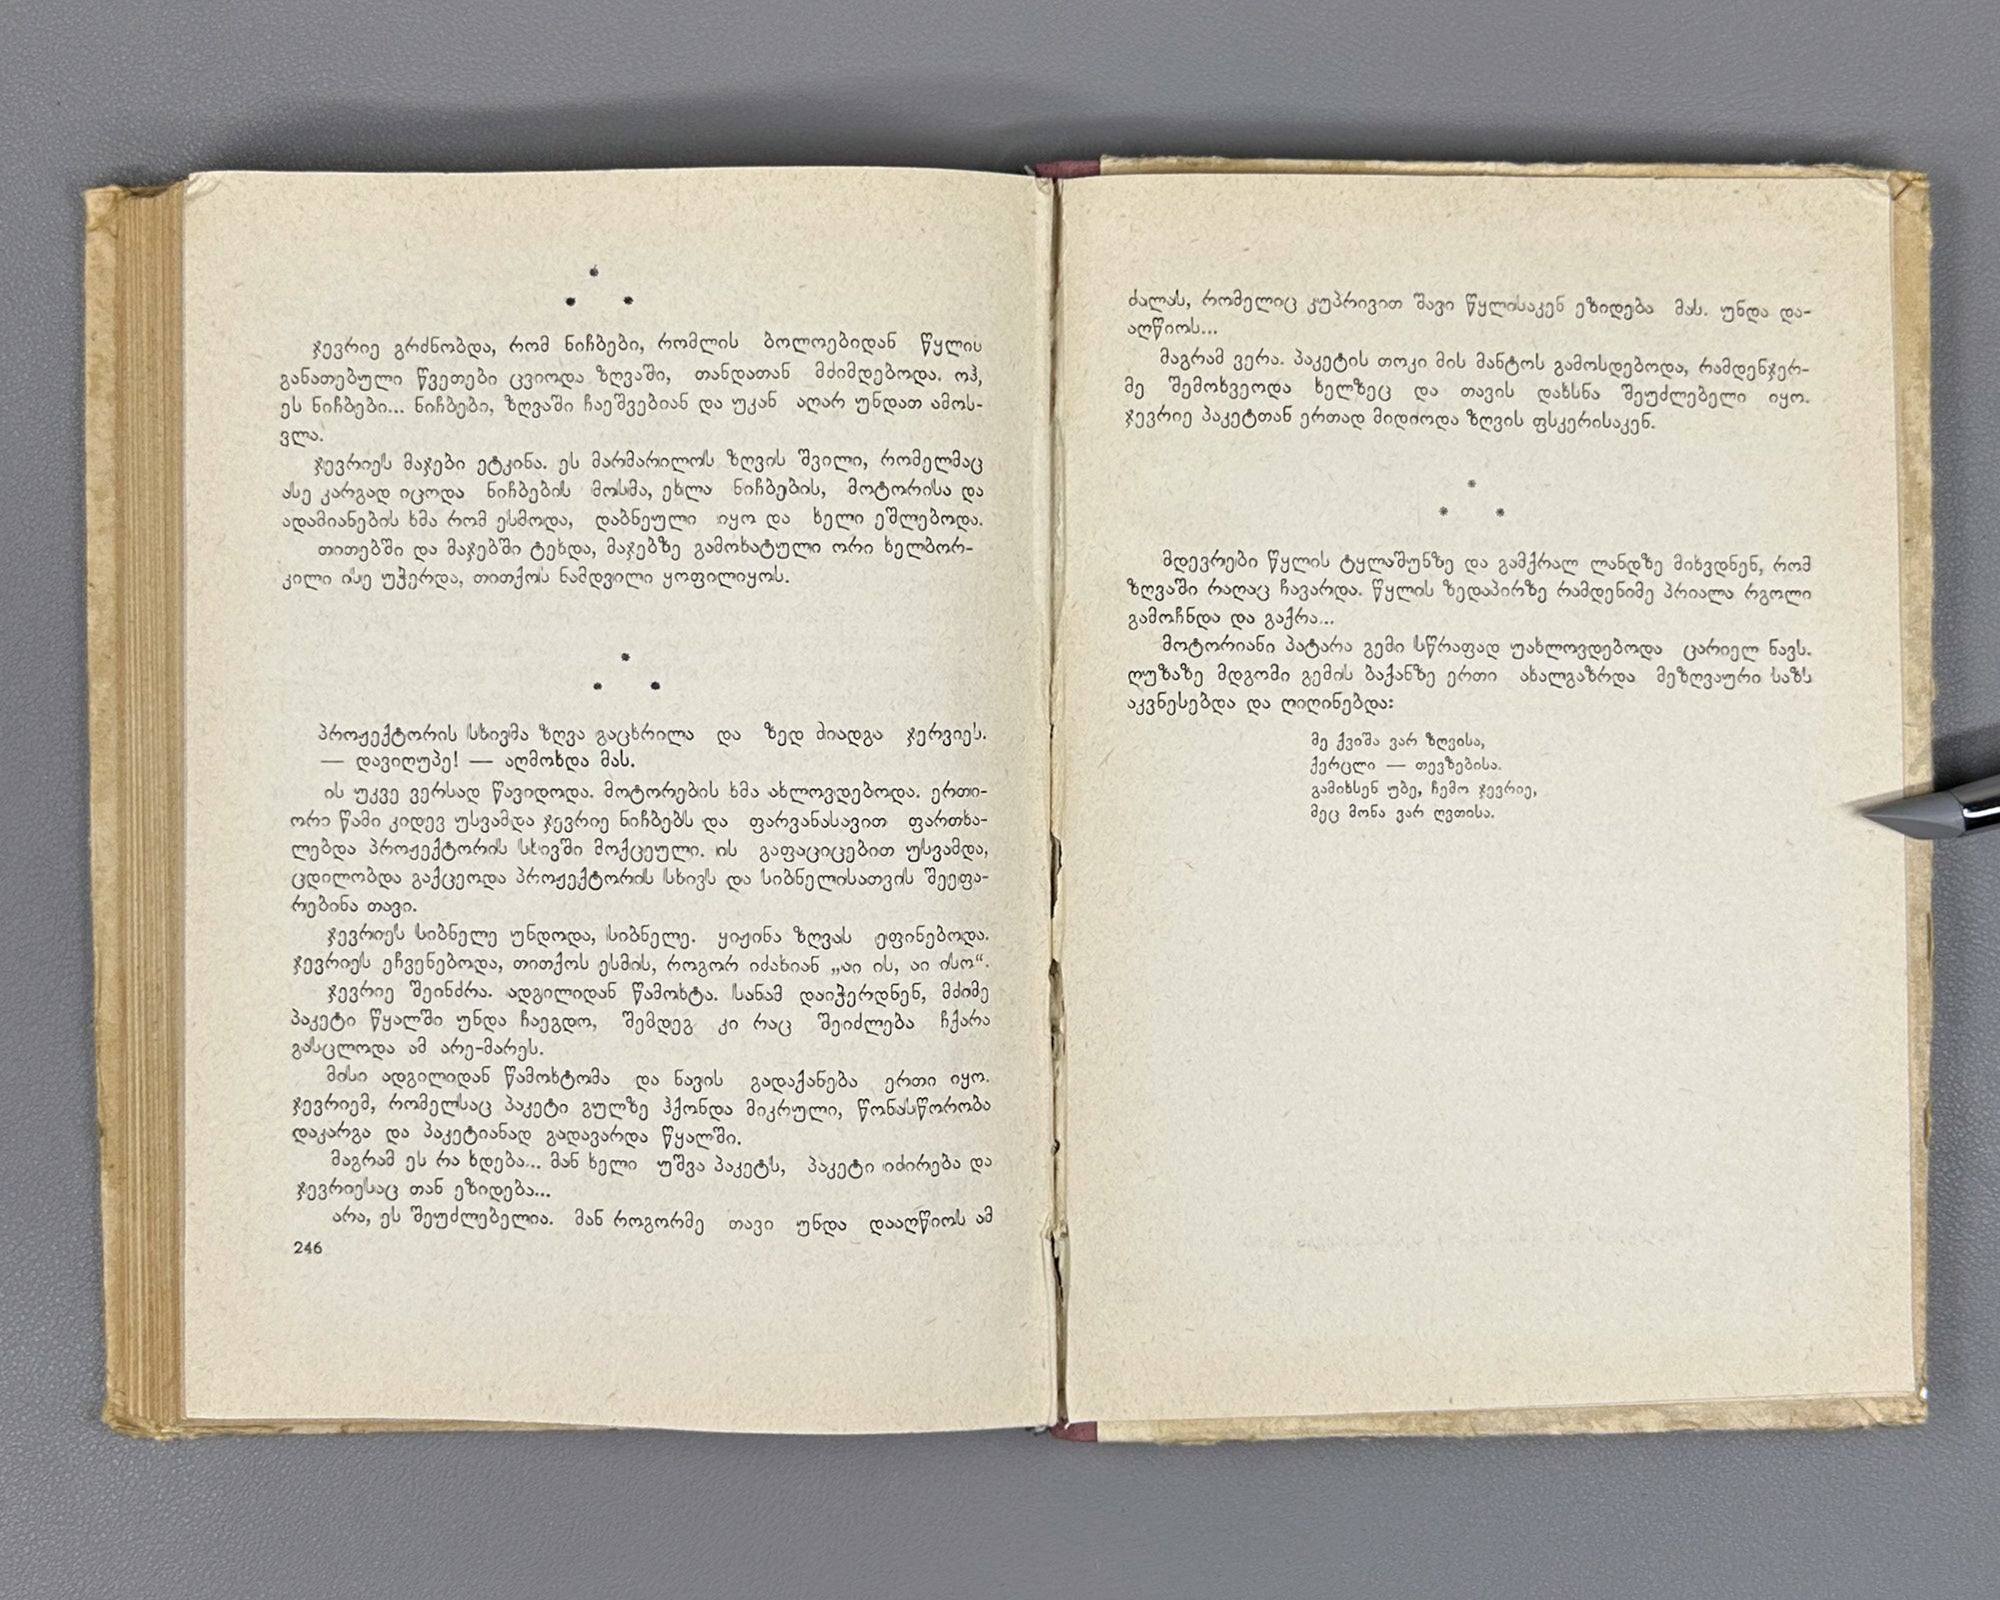 *
* *
ჯევრიე გრძნობდა, რომ ნიჩბები, რომლის ბოლოებიდან წყლის
განათებული წვეთები ცვიოდა ზღვაში, თანდათან მძიმდებოდა. ოჰ,
ეს ნიჩბები... ნიჩბები, ზღვაში ჩაეშვებიან და უკან აღარ უნდათ ამოს-
ვლა.
ჯევრიეს მაჯები ეტკინა. ეს მარმარილოს ზღვის შვილი, რომელმაც
ასე კარგად იცოდა ნიჩბების მოსმა, ეხლა ნიჩბების, მოტორისა და
ადამიანების ხმა რომ ესმოდა, დაბნეული იყო და ხელი ეშლებოდა.
თითებში და მაჯებში ტეხდა, მაჯებზე გამოხატული ორი ხელბორ-
კილი ისე უჭერდა, თითქოს ნამდვილი ყოფილიყოს.
*
* *
პროჟექტორის სხივმა ზღვა გაცხრილა და ზედ მიადგა ჯერვიეს.
— დავიღუპე! — აღმოხდა მას.
ის უკვე ვერსად წავიდოდა. მოტორების ხმა ახლოვდებოდა. ერთი-
ორი წამი კიდევ უსვამდა ჯევრიე ნიჩბებს და ფარვანასავით ფართხა-
ლებდა პროჟექტორის სხივში მოქცეული. ის გაფაციცებით უსვამდა,
ცდილობდა გაქცეოდა პროჟექტორის სხივს და სიბნელისათვის შეეფა-
რებინა თავი.
ჯევრიეს სიბნელე უნდოდა, სიბნელე. ყიჟინა ზღვას ეფინებოდა.
ჯევრიეს ეჩვენებოდა, თითქოს ესმის, როგორ იძახიან „აი ის, აი ისო“.
ჯევრიე შეინძრა. ადგილიდან წამოხტა. სანამ დაიჭერდნენ, მძიმე
პაკეტი წყალში უნდა ჩაეგდო, შემდეგ კი რაც შეიძლება ჩქარა
გასცლოდა ამ არე-მარეს.
მისი ადგილიდან წამოხტომა და ნავის გადაქანება ერთი იყო.
ჯევრიემ, რომელსაც პაკეტი გულზე ჰქონდა მიკრული, წონასწორობა
დაკარგა და პაკეტიანად გადავარდა წყალში.
მაგრამ ეს რა ხდება... მან ხელი უშვა პაკეტს, პაკეტი იძირება და
ჯევრიესაც თან ეზიდება...
არა, ეს შეუძლებელია. მან როგორმე თავი უნდა დააღწიოს ამ
246
ძალას, რომელიც კუპრივით შავი წყლისაკენ ეზიდება მას. უნდა და-
აღწიოს...
მაგრამ ვერა. პაკეტის თოკი მის მანტოს გამოსდებოდა, რამდენჯერ-
მე შემოხვეოდა ხელზეც და თავის დახსნა შეუძლებელი იყო.
ჯევრიე პაკეტთან ერთად მიდიოდა ზღვის ფსკერისაკენ.
*
* *
მდევრები წყლის ტყლაშუნზე და გამქრალ ლანდზე მიხვდნენ, რომ
ზღვაში რაღაც ჩავარდა. წყლის ზედაპირზე რამდენიმე პრიალა რგოლი
გამოჩნდა და გაქრა...
მოტორიანი პატარა გემი სწრაფად უახლოვდებოდა ცარიელ ნავს.
ღუზაზე მდგომი გემის ბაქანზე ერთი ახალგაზრდა მეზღვაური საზს
აკვნესებდა და ღიღინებდა:
მე ქვიშა ვარ ზღვისა,
ქერცლი — თევზებისა.
გამიხსენ უბე, ჩემო ჯევრიე,
მეც მონა ვარ ღვთისა.